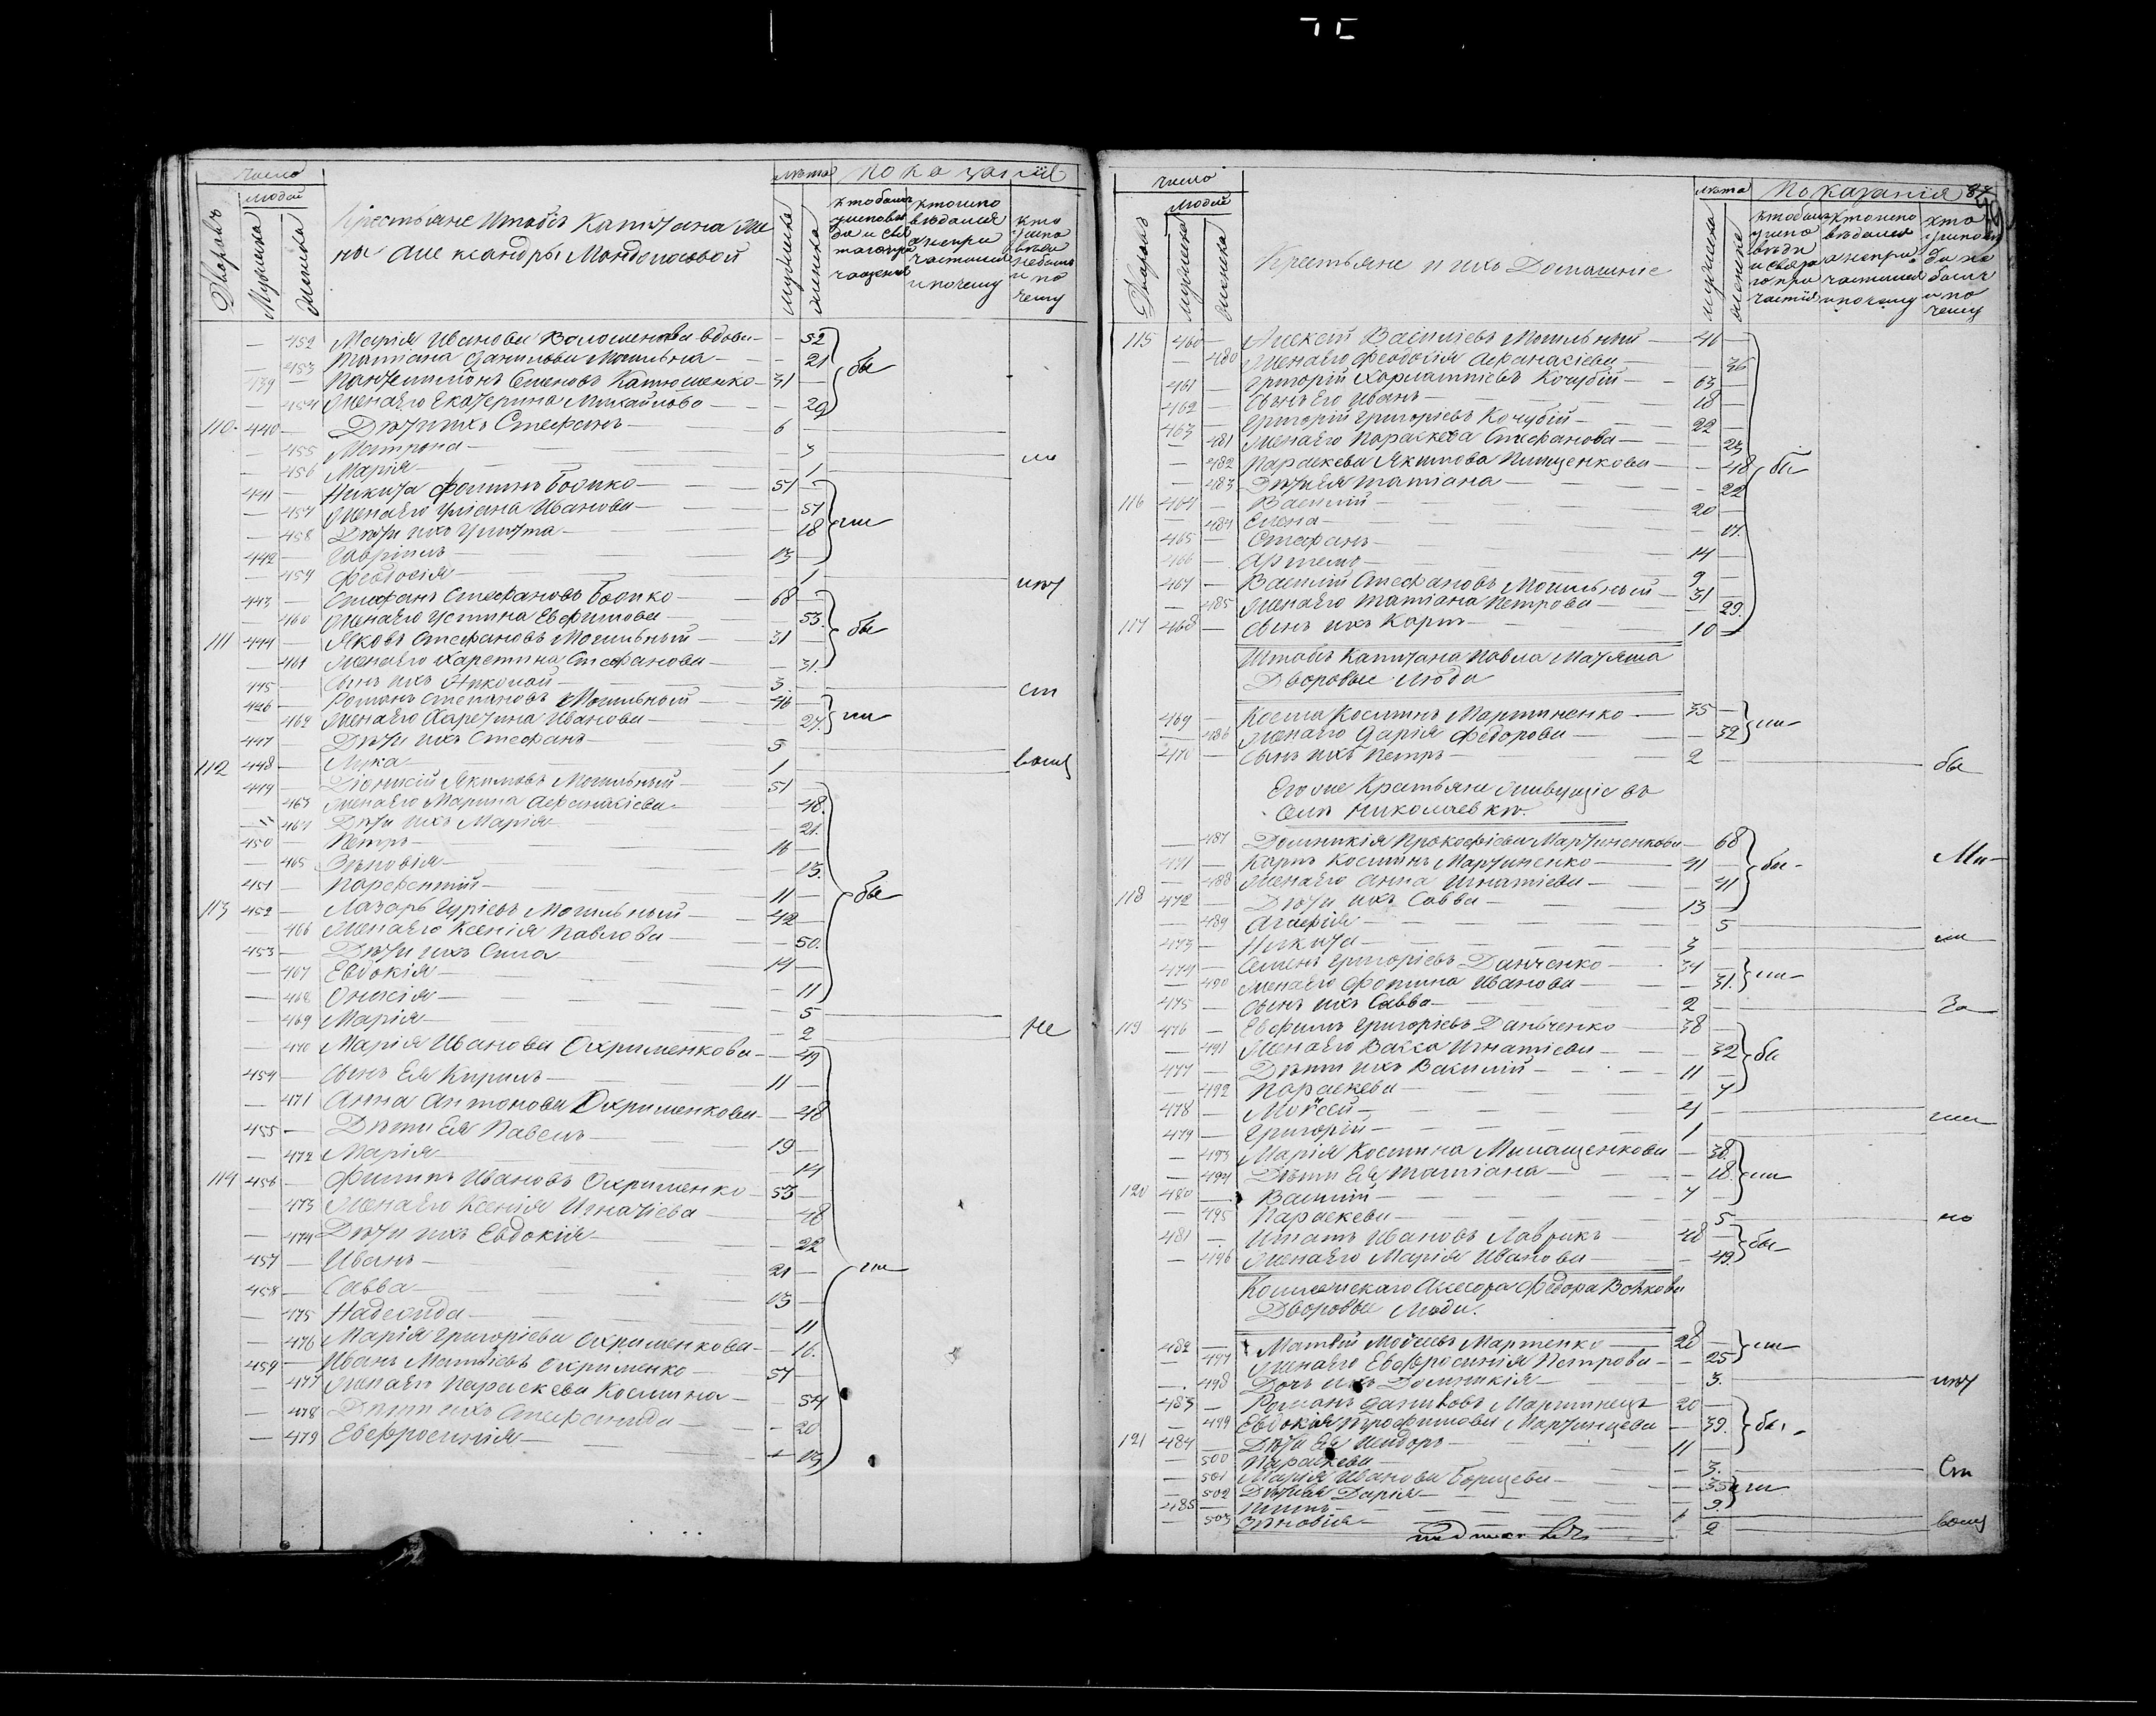 Число
людей
Дворовъ
Мужеска
Женска
Крестьяне Штабсъ Капитана Же
ны Александры
лѣта
мужеска
женска
показанія
кто былъ
у исповѣ
ди и свя
таго при
чащенія
кто испо
вѣдался
а непри
частился
и почему
кто
у испо
вѣди
небылъ
и по
чему
— 452 Марія Иванова вдова — 52
— 453 Татіана Данилова Могильна — 21
бы
439 — Пантелимонъ Семеновъ Катюшенко — 31 —
— 454 Жена его Екатерина Михайлова — 29
110 440 — Дѣти ихъ Стефанъ — 6 —
— 455 Матрона — 3
ли
— 456 Марія — 1
441 — Никита Фоминъ Бойко — 51 —
— 457 Жена его Уліана Иванова — 51
— 458 Дѣти ихъ Улита — 18
ли
442 — Гавріилъ — 13 —
— 459 Феодосія — 1
443 — Стефанъ Стефановъ Бойко — 68 —
— 460 Жена его Устина Евфимова — 53
бы
111 444 — Яковъ Стефановъ Могильный — 31 —
— 461 Жена его Харетина Стефанова — 31
445 — Сынъ ихъ Николай — 3 —
ст
446 — Романъ Степановъ Могильный — 46 —
— 462 Жена его Харетина Иванова — 27
ли
447 — Дѣти ихъ Стефанъ — 5 —
112 448 — Лука — 1 —
449 — Діонисій Якимовъ Могильный — 51 —
— 463 Жена его Марина Афанасіева — 48
— 464 Дѣти ихъ Марія — 21
450 — Петръ — 16 —
— 465 Зѣновія — 13
451 — Парфентій — 11 —
бы
113 452 — Лазарь Гуріевъ Могильный — 42 —
— 466 Жена его Ксенія Павлова — 50
453 — Дѣти ихъ Сила — 14 —
— 467 Евдокія — 11
— 468 Онисія — 5
— 469 Марія — 2
не
— 470 Марія Иванова Охрименкова — 49
454 — Сынъ Ея Кирилъ — 11 —
— 471 Анна Антонова Охрименкова — 48
455 — Дѣти Ея Павелъ — 19 —
— 472 Марія — 14
114 456 — Филипъ Ивановъ Охрименко — 53 —
— 473 Жена его Ксенія Игнатіева — 48
— 474 Дѣти ихъ Евдокія — 22
457 — Иванъ — 21 —
ли
458 — Савва — 13 —
— 475 Надежда — 11
— 476 Марія Григоріева Охрименкова — 16
459 — Иванъ Матвіевъ Охрименко — 57 —
— 477 Жена его Параскева Космина — 54
— 478 Дѣти ихъ Стефанида — 20
— 479 Евфросинія — 13
число
людей
Дворовъ
мужеска
женска
Крестьяне и ихъ Домашніе
лѣта
мужеска
женска
показанія 87
кто былъ
у испо
вѣди
и свята
го при
частія
кто испо
вѣдался
а непри
частился
и почему
кто
у исповѣ
ди не
былъ
и по
чему
115 460 — Алексій Василіевъ Могильный — 41 —
— 480 Жена его Феодосія Афанасіева — 36
461 — Григорій Харлампіевъ Кочубій — 63 —
462 — Сынъ Его Иванъ — 18 —
463 — Григорій Григоріевъ Кочубій — 22 —
— 481 Жена его Параскева Стефанова — 23
— 482 Параскева Якимова — 48
бы
— 483 Дѣти Ея Татіана — 22
116 464 — Василій — 20 —
— 484 Елена — 17
465 — Стефанъ — 14 —
466 — Артемъ — 9 —
467 — Василій Стефановъ Могильный — 31 —
— 485 Жена его Татіана Петрова — 29
117 468 — Сынъ ихъ Карпъ — 10 —
Штабсъ Капитана Павла Матяша
Дворовые люди
469 — Косма Косминъ Мартиненко — 35 —
— 486 Жена его Дарія Федорова — 32
ли
470 — Сынъ ихъ Петръ — 2
бы
Его же Крестьяне живущіе въ
селѣ Николаевкѣ.
— 487 Домникія Прокофіева Мартиненкова — 68
471 — Карпъ Косминъ Мартиненко — 41 —
бы
— 488 Жена его Анна Игнатіева — 41
118 472 — Дѣти ихъ Савва — 13 —
— 489 Агафія — 5
473 — Никита — 3 —
ли
474 — Семенъ Григоріевъ Данченко — 34 —
— 490 Жена его Фотина Иванова — 31
ли
475 — Сынъ ихъ Савва — 2 —
за
119 476 — Евфимъ Григоріевъ Даньченко — 38 —
— 491 Жена его Васса Игнатіева — 32
бы
477 — Дѣти ихъ Василій — 11 —
— 492 Параскева — 7
478 — Мойсей — 4 —
479 — Григорій — 1
— 493 Марія Космина — 38
— 494 Дѣти Ея Татіана — 18
ли
120 480 — Василій — 7 —
— 495 Параскева — 5
481 — Игнатъ Ивановъ Лаврикъ — 48 —
— 496 Жена его Марія Иванова — 49
бы
Колежскаго Асесора Федора Волкова
Дворовые Люди.
482 — Матвій Мойсеевъ Мартенко — 28 —
— 497 Жена его Евфросинія Петрова — 25
ли
— 498 Дочь ихъ Домникія — 3
483 — Романъ Даниловъ Мартинецъ — 20 —
— 499 Евдокія Трофимова Мартинцева — 39
бы
121 484 — Дѣти Ея Исидоръ — 11 —
— 500 Параскева — 3
ст
— 501 Марія Иванова Борщева — 35
— 502 Дѣти Ея Дарія — 9
ли
485 — Титъ — 6
— 503 Зѣновія — 2